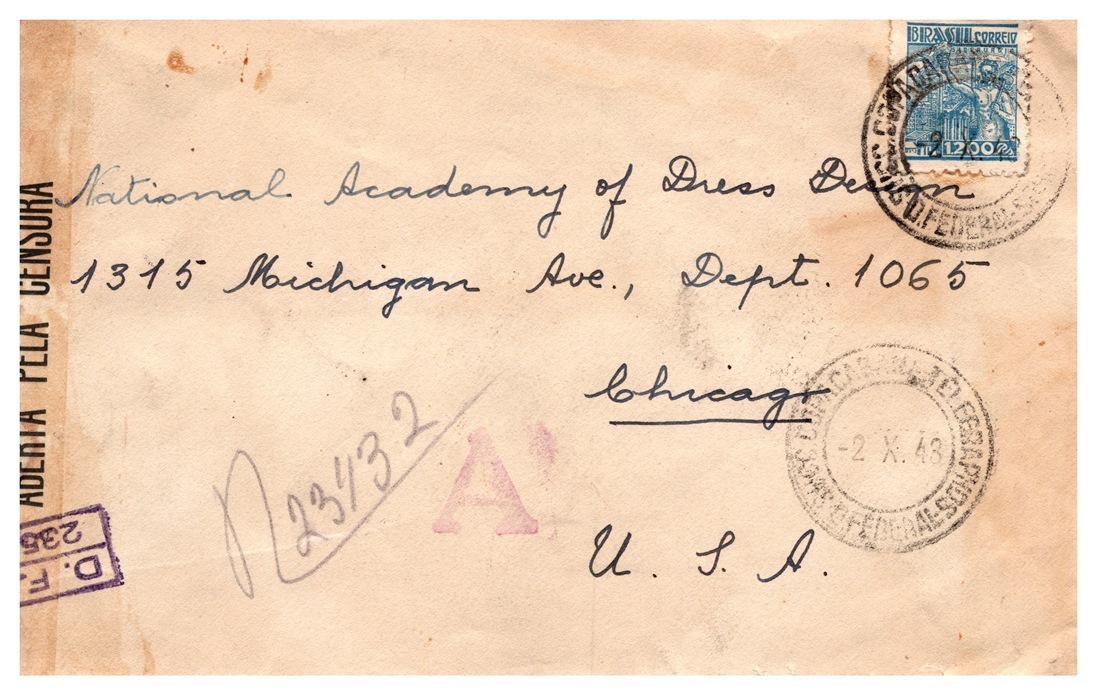 BRASIL CORREIO
1200 Rs
National Academy of Dress Design
1315 Michigan Ave., Dept. 1065
Chicago
U. S. A.
ABERTA PELA CENSURA
D. F.
235
23432
A
-2 X. 43